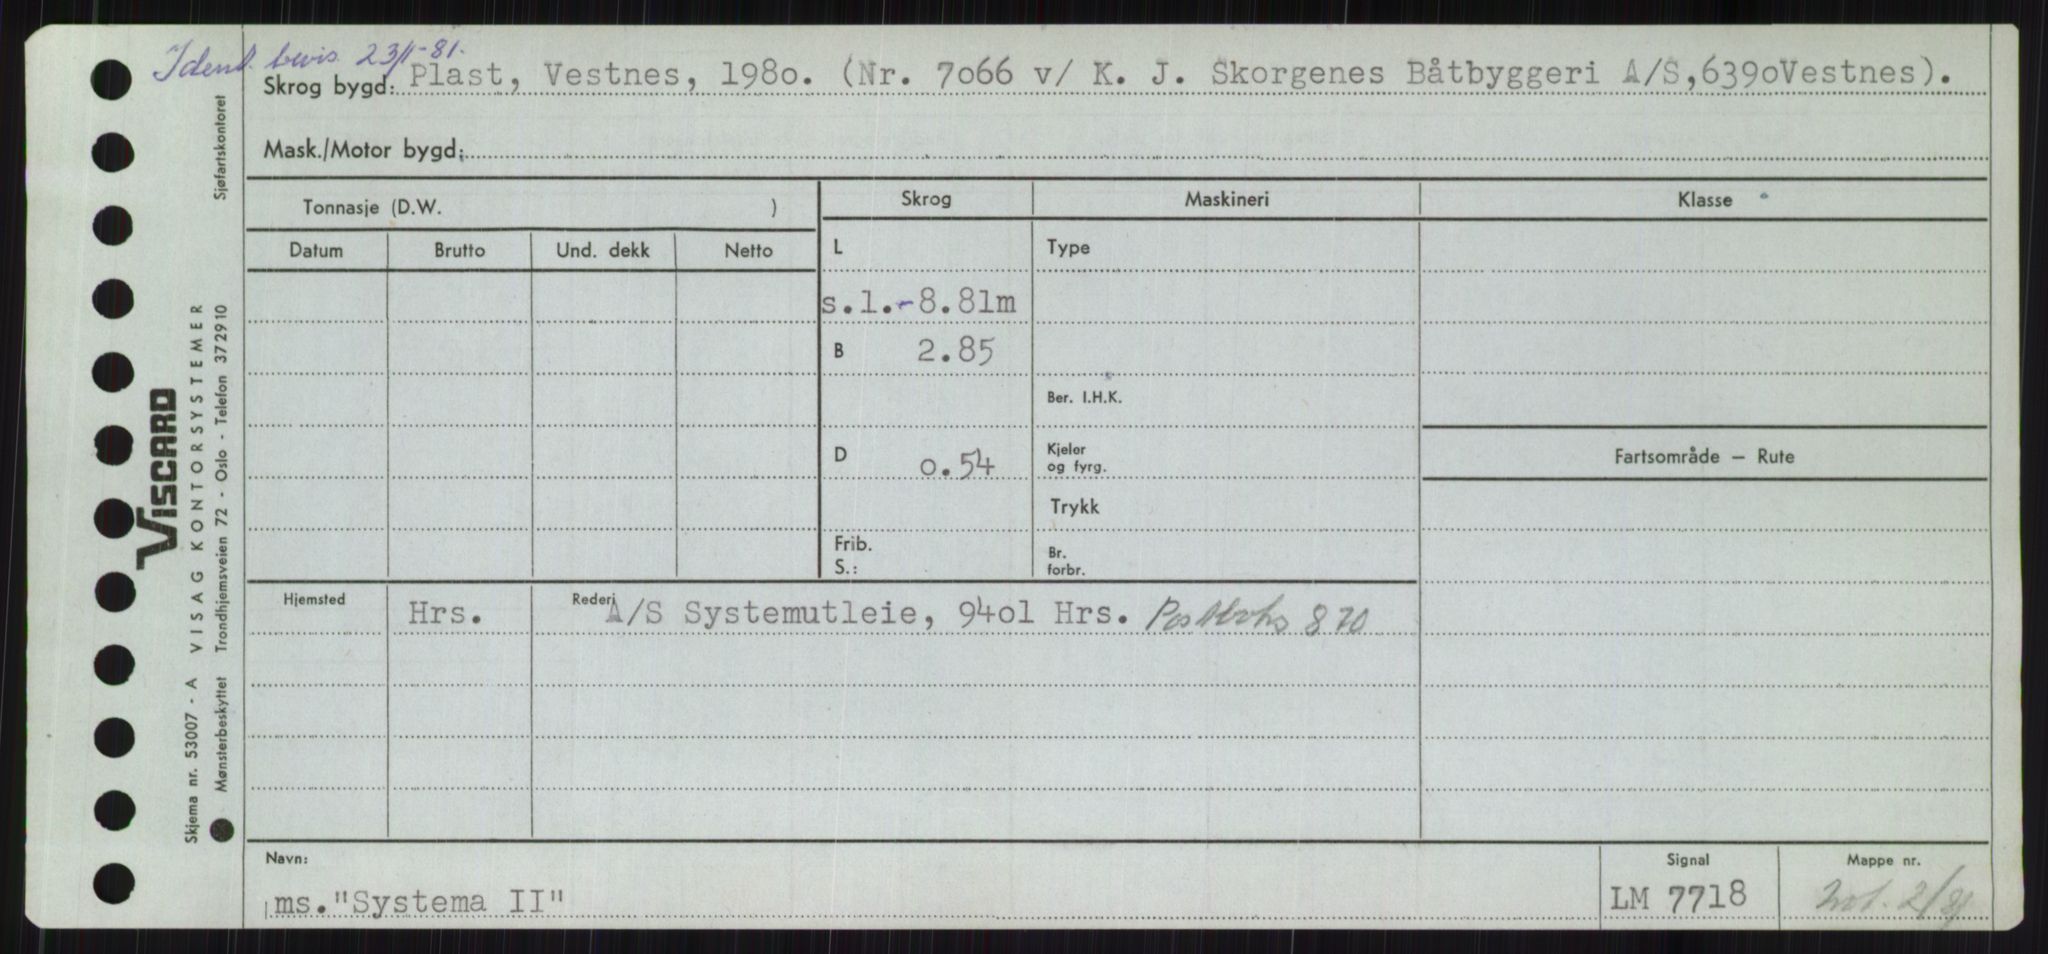 Ident. bevis 23/1-81.
Skrog bygd: Plast, Vestnes, 198o. (Nr. 7o66 v/ K. J. Skorgenes Båtbyggeri A/S,639oVestnes).
Mask./Motor bygd:
Tonnasje (D.W. )
Skrog
Maskineri
Klasse
Datum
Brutto
Und. dekk
Netto
L
Type
s.l.-8.81m
B 2.85
Ber. I.H.K.
D o.54
Kjeler
og fyrg.
Fartsområde – Rute
Trykk
Frib.
S.:
Br.
forbr.
Hjemsted
Hrs.
Rederi
A/S Systemutleie, 94o1 Hrs. Postboks 870
Navn:
ms."Systema II"
Signal
LM 7718
Mappe nr.
2/81
Sjøfartskontoret
VISCARD
VISAG KONTORSYSTEMER
Trondhjemsveien 72 - Oslo - Telefon 372910
Skjema nr. 53007 - A
Mønsterbeskyttet